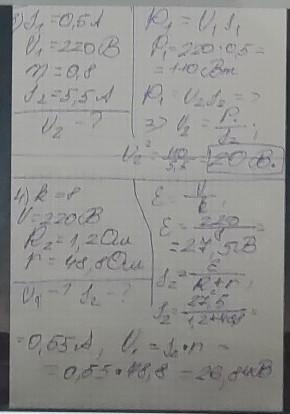 3) I₁=0,5A
U₁=220В
η=0,8
I₂=5,5A
U₂-?
P₁=U₁I₁
P₁=220·0,5=
=110Вт
P₁=U₂I₂=>
=> U₂=P₁/I₂;
U₂=110/5,5=20В.
4) k=8
U=220В
R₂=1,2Ом
r=48,8Ом
U₁-? I₂-?
ε=U/k;
ε=220/8=
=27,5В
I₂=ε/(R+r);
I₂=27,5/(1,2+48,8)
=0,55A, U₁=I₂·r=
=0,55·48,8=26,84В